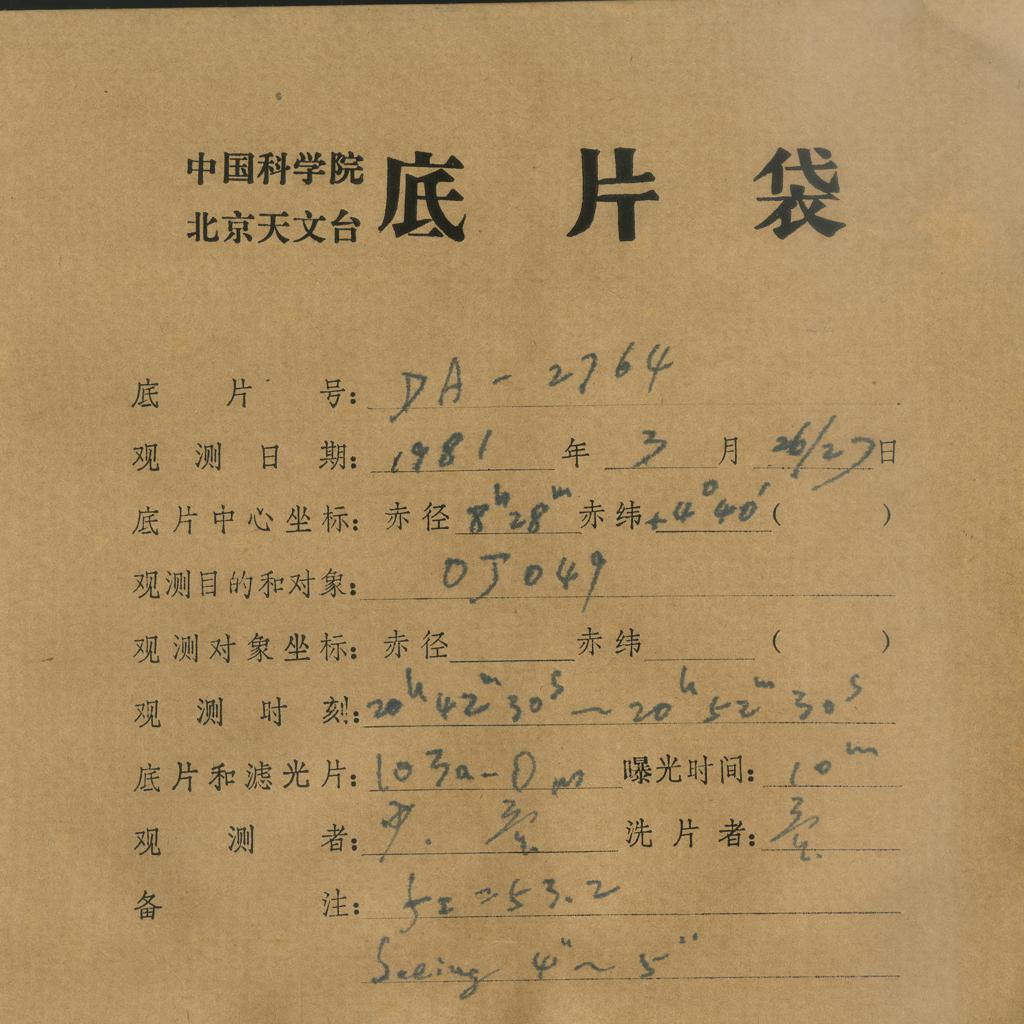 中国科学院
北京天文台
底片袋
底片号: DA - 2764
观测日期: 1981 年 3 月 26/27 日
底片中心坐标: 赤径 8h28m 赤纬 +4°40' ( )
观测目的和对象: OJ049
观测对象坐标: 赤径 赤纬 ( )
观测时刻: 20h42m30s ~ 20h52m30s
底片和滤光片: 103a-O 曝光时间: 10m
观测者: 洗片者:
备注: = 53.2
Seeing 4" ~ 5"